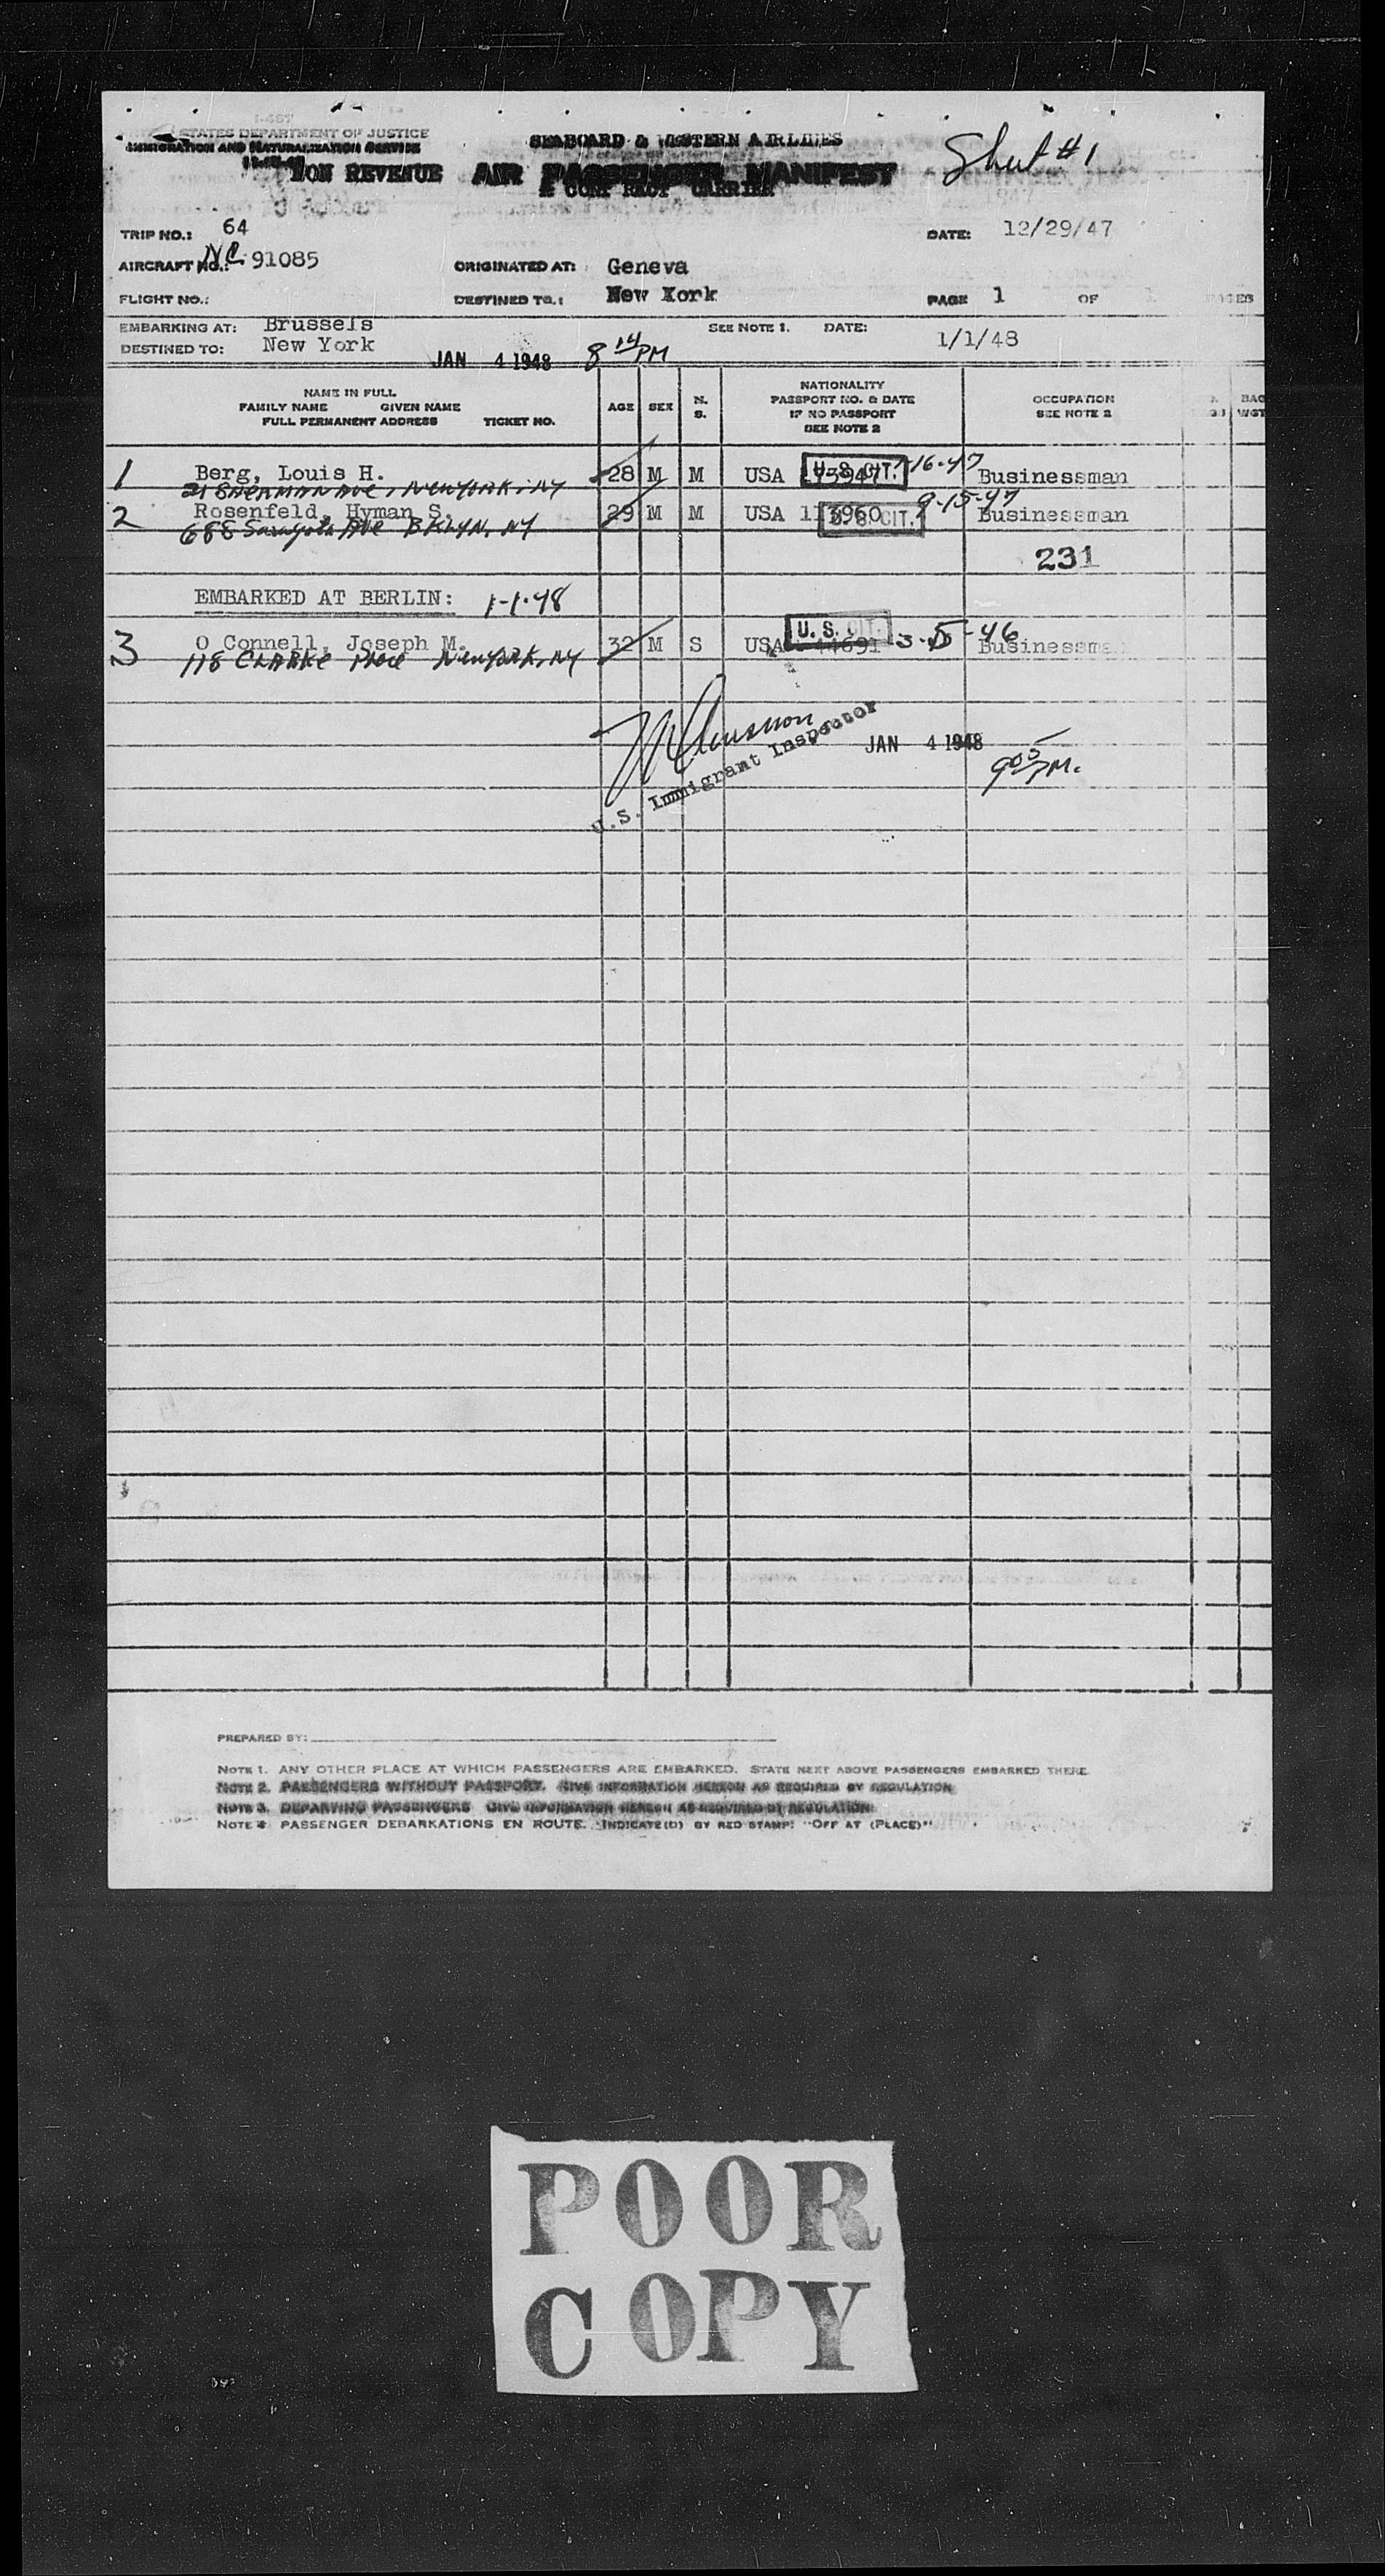 I-467
STATES DEPARTMENT OF JUSTICE
IMMIGRATION AND NATURALIZATION SERVICE
SEABOARD & WESTERN AIRLINES
Sheet #1
NON REVENUE AIR PASSENGER MANIFEST
A CONTRACT CARRIER
TRIP NO.: 64 DATE: 12/29/47
AIRCRAFT NO.: NC 91085 ORIGINATED AT: Geneva
FLIGHT NO.: DESTINED TO.: New York PAGE 1 OF 1 PAGES
EMBARKING AT: Brussels SEE NOTE 1. DATE: 1/1/48
DESTINED TO: New York JAN 4 1948 8 14 PM
NAME IN FULL
FAMILY NAME GIVEN NAME
FULL PERMANENT ADDRESS TICKET NO.
AGE SEX
M.
S.
NATIONALITY
PASSPORT NO. & DATE
IF NO PASSPORT
SEE NOTE 2
OCCUPATION
SEE NOTE 2
BAG
WGT
1 Berg, Louis H. 28 M M USA U.S. CIT. 16-47 Businessman
21 SHERMAN AVE, NEW YORK, NY
2 Rosenfeld, Hyman S. 29 M M USA U.S. CIT. 9-15-47 Businessman
688 Saratoga Ave BKLYN, NY
231
EMBARKED AT BERLIN: 1-1-48
3 O Connell, Joseph M. 32 M S USA U.S. CIT. 44691 Businessma
118 CLARKE Place New York, NY
U.S. Immigrant Inspector
JAN 4 1948
9 05 PM.
PREPARED BY:
NOTE 1. ANY OTHER PLACE AT WHICH PASSENGERS ARE EMBARKED. STATE NEXT ABOVE PASSENGERS EMBARKED THERE
NOTE 2. PASSENGERS WITHOUT PASSPORT. GIVE INFORMATION HEREON AS REQUIRED BY REGULATION
NOTE 3. DEPARTING PASSENGERS GIVE INFORMATION HEREON AS REQUIRED BY REGULATION
NOTE 4 PASSENGER DEBARKATIONS EN ROUTE. INDICATE(D) BY RED STAMP: "OFF AT (PLACE)"
POOR
COPY